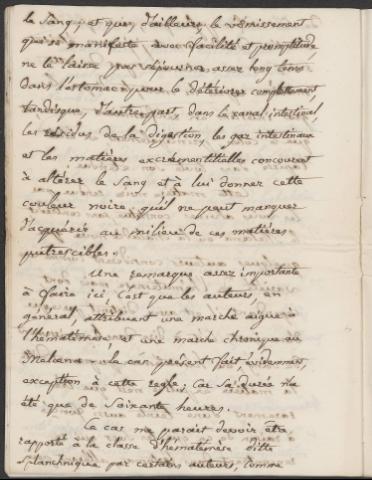 le sang, et que, d'ailleurs, le vomissement
qui se manifeste avec facilité et promptitude,
ne le laisse pas séjourner assez long tems
dans l'estomac pour le détériorer complettement,
tandisque, d'autre part, dans le canal intestinal
les résidus de la digestion, les gaz intestinaux
et les matières excrémentitielles concourent
à altérer le sang et à lui donner cette
couleur noire, qu'il ne peut manquer
d'acquérir au milieu de ces matières
putrescibles.
Une remarque assez importante
à faire ici, c'est que les auteurs, en
général, attribuent une marche aigue à
l'hématémèse et une marche chronique au
Melœna. le cas présent fait, evidemment,
exception à cette regle; car sa durée n'a
été que de soixante heures.
Ce cas me parait devoir etre
rapporté à la classe d'hématémèse ditte
splanchnique par certains auteurs, comme